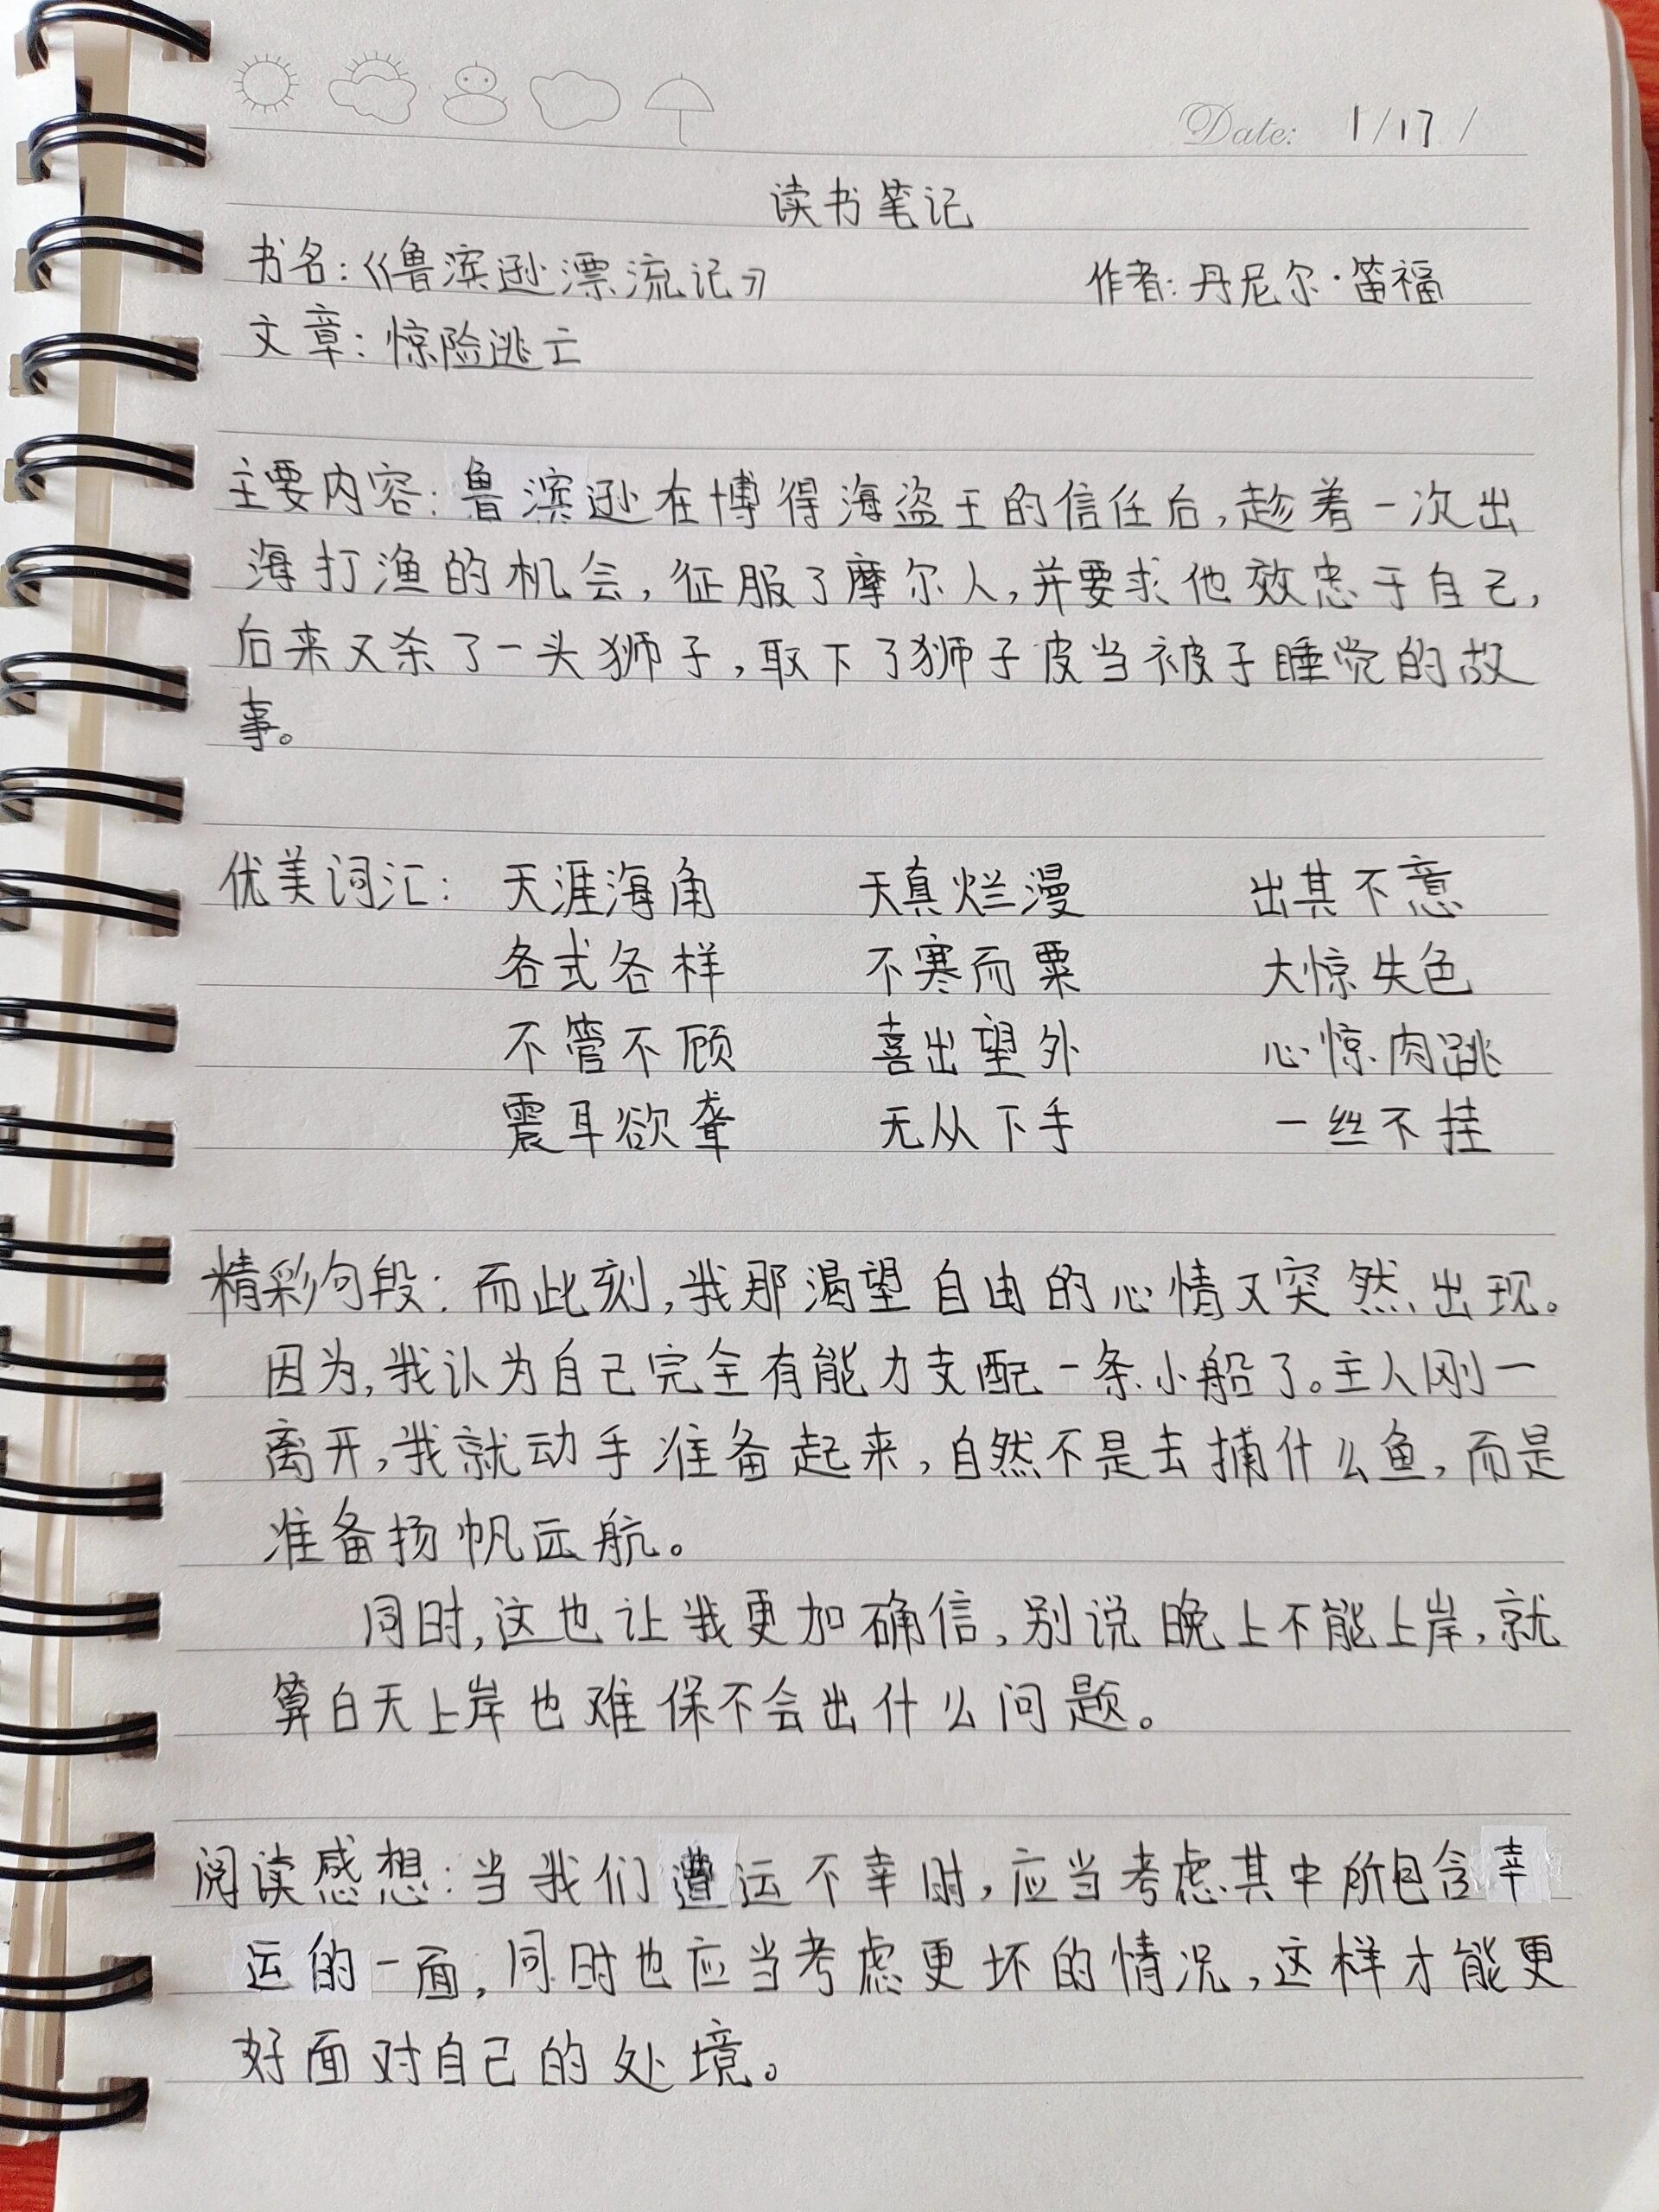 Date: 1/17/
读书笔记
书名:《鲁滨逊漂流记》 作者:丹尼尔·笛福
文章:惊险逃亡
主要内容:鲁滨逊在博得海盗王的信任后,趁着一次出
海打渔的机会,征服了摩尔人,并要求他效忠于自己,
后来又杀了一头狮子,取下了狮子皮当被子睡觉的故
事。
优美词汇: 天涯海角 天真烂漫 出其不意
各式各样 不寒而粟 大惊失色
不管不顾 喜出望外 心惊肉跳
震耳欲聋 无从下手 一丝不挂
精彩句段:而此刻,我那渴望自由的心情又突然出现。
因为,我认为自己完全有能力支配一条小船了。主人刚一
离开,我就动手准备起来,自然不是去捕什么鱼,而是
准备扬帆远航。
同时,这也让我更加确信,别说晚上不能上岸,就
算白天上岸也难保不会出什么问题。
阅读感想:当我们遭运不幸时,应当考虑其中所包含幸
运的一面,同时也应当考虑更坏的情况,这样才能更
好面对自己的处境。